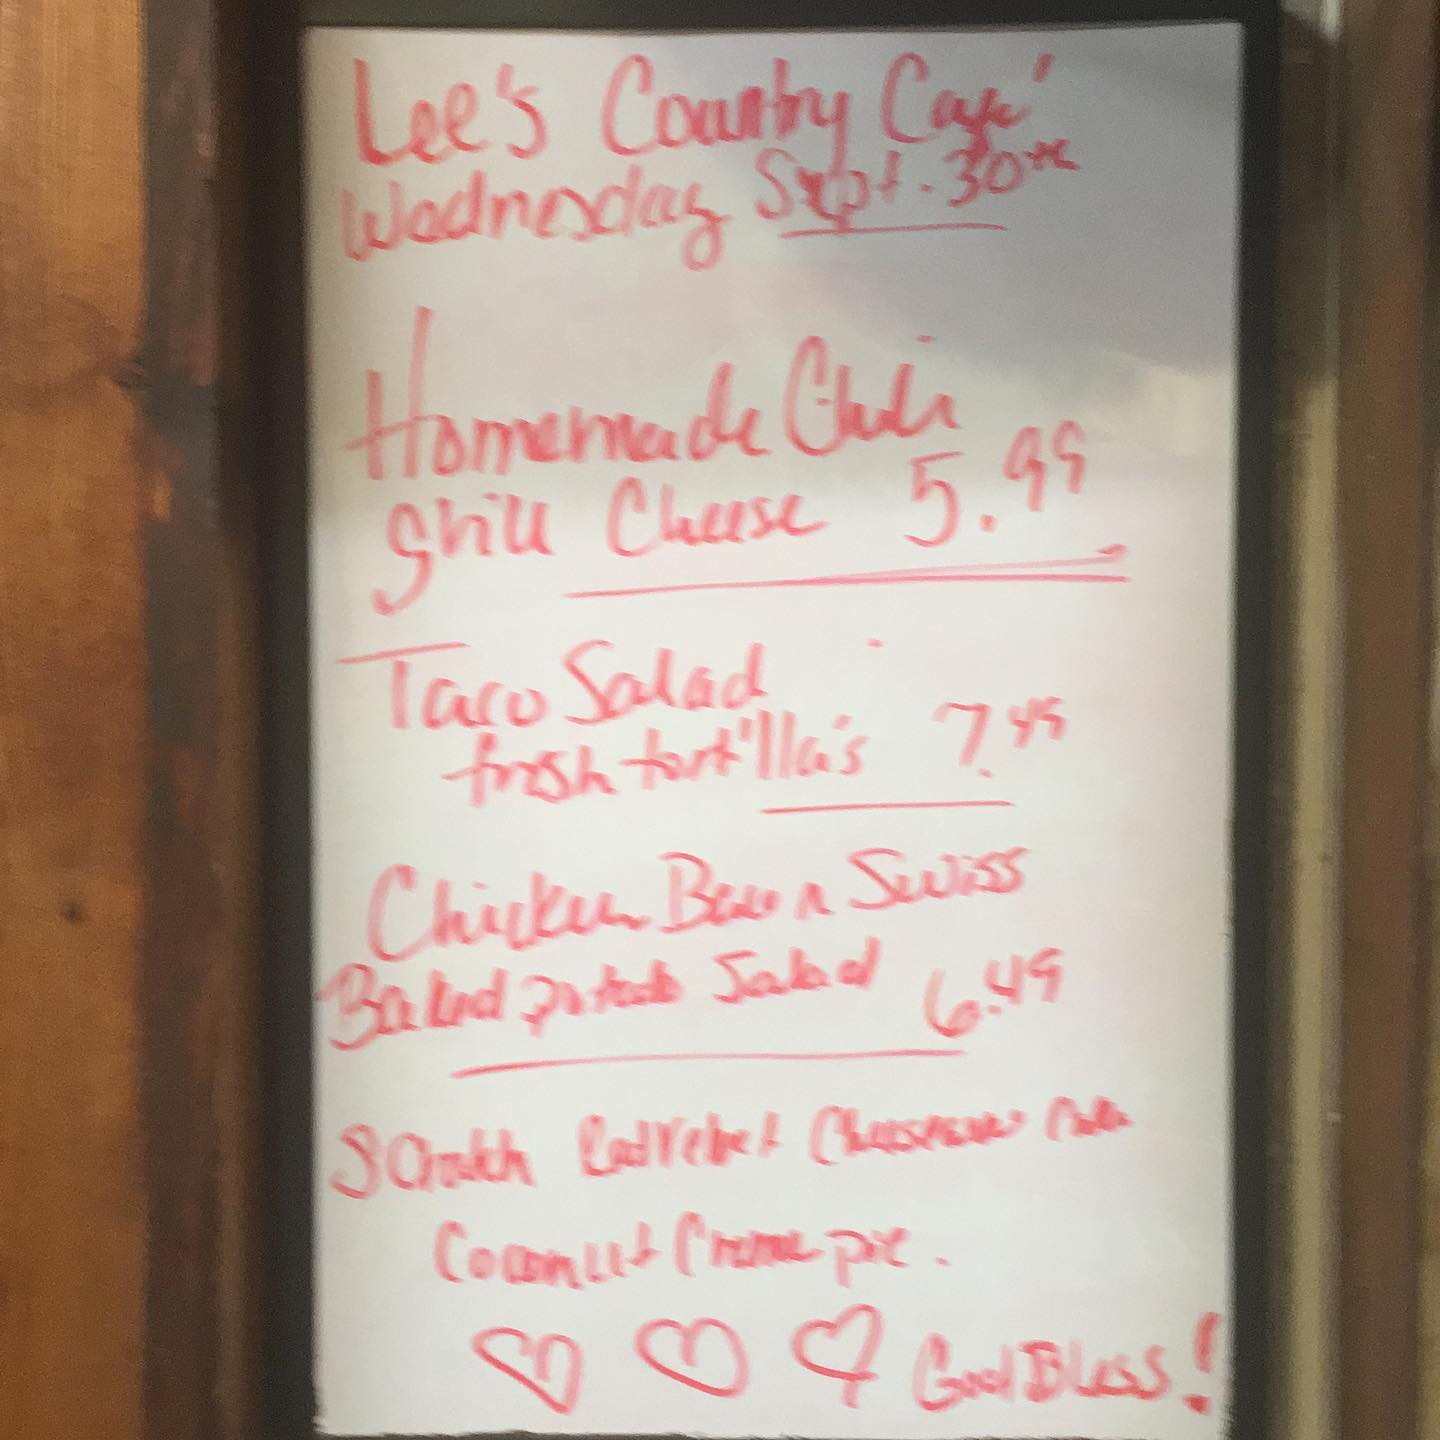 Lee's Country Cafe'
Wednesday Sept. 30th
Homemade Chili
Grill Cheese 5.99
Taco Salad
fresh tortilla's 7.49
Chicken Bacon Swiss
Baked potato Salad 6.49
Scratch Redvelvet Cheesecake
Coconut Creme pie.
God Bless!